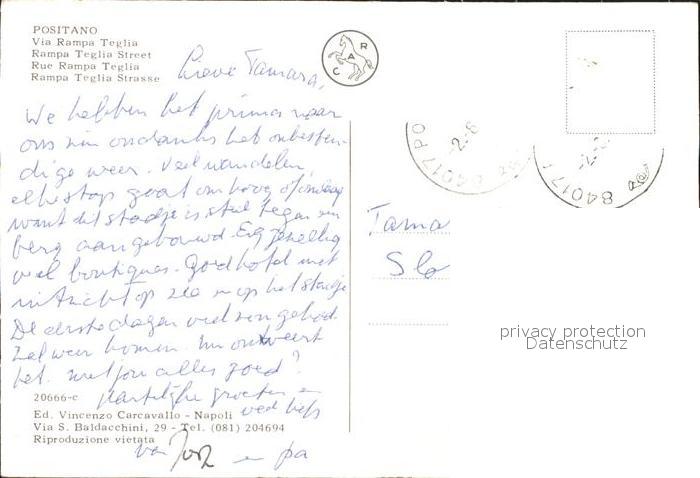 POSITANO
Via Rampa Teglia
Rampa Teglia Street
Rue Rampa Teglia
Rampa Teglia Strasse
CAR
Lieve Tamara,
We hebben het prima naar
ons zin ondanks het onbesten-
dige weer. Veel wandelen,
elke stap gaat omhoog of omlaag
want dit stadje is steil tegen een
berg aangebouwd. Erg gezellig
veel boutiques. Goed hotel met
uitzicht op zee en op het stadje
De eerste dagen veel zon gehad
zal weer komen. Nu onweert
het. Met jou alles goed?
Hartelijke groeten en
veel liefs
van en pa
20666-c
Ed. Vincenzo Carcavallo - Napoli
Via S. Baldacchini, 29 - Tel. (081) 204694
Riproduzione vietata
84017 PO
-2.-8
84017
-2.-
Tama
Slo
privacy protection
Datenschutz